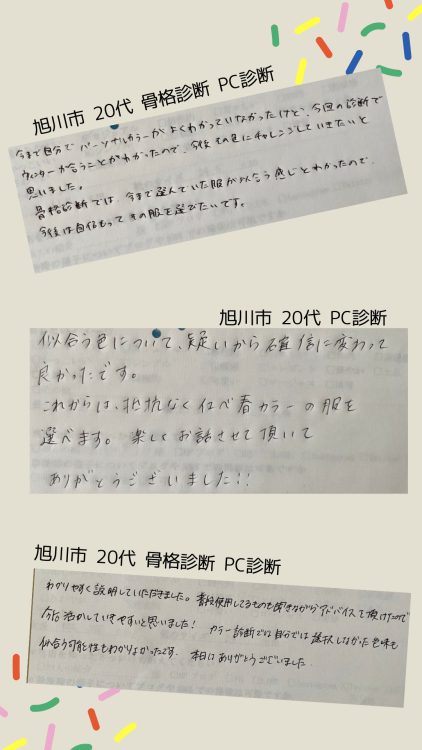 旭川市 20代 骨格診断 PC診断
今まで自分で パーソナルカラーが よくわかっていなかったけど、今回の診断で
ウィンターが合うことがわかったので、今後その色にチャレンジしていきたいと
思いました。
骨格診断では、今まで選んでいた服が似合う感じとわかったので、
今後は自信もって その服を選びたいです。
旭川市 20代 PC診断
似合う色について、疑いから確信に変わって
良かったです。
これからは、抵抗なくイエベ春カラーの服を
選べます。 楽しくお話させて頂いて
ありがとうございました!!
旭川市 20代 骨格診断 PC診断
わかりやすく説明していただきました。普段使用してるものも聞きながらアドバイスを頂けたので
今后活かしていきやすいと思いました! カラー診断では自分では選択しなかった色味も
似合う可能性もわかりよかったです. 本日はありがとうございました.